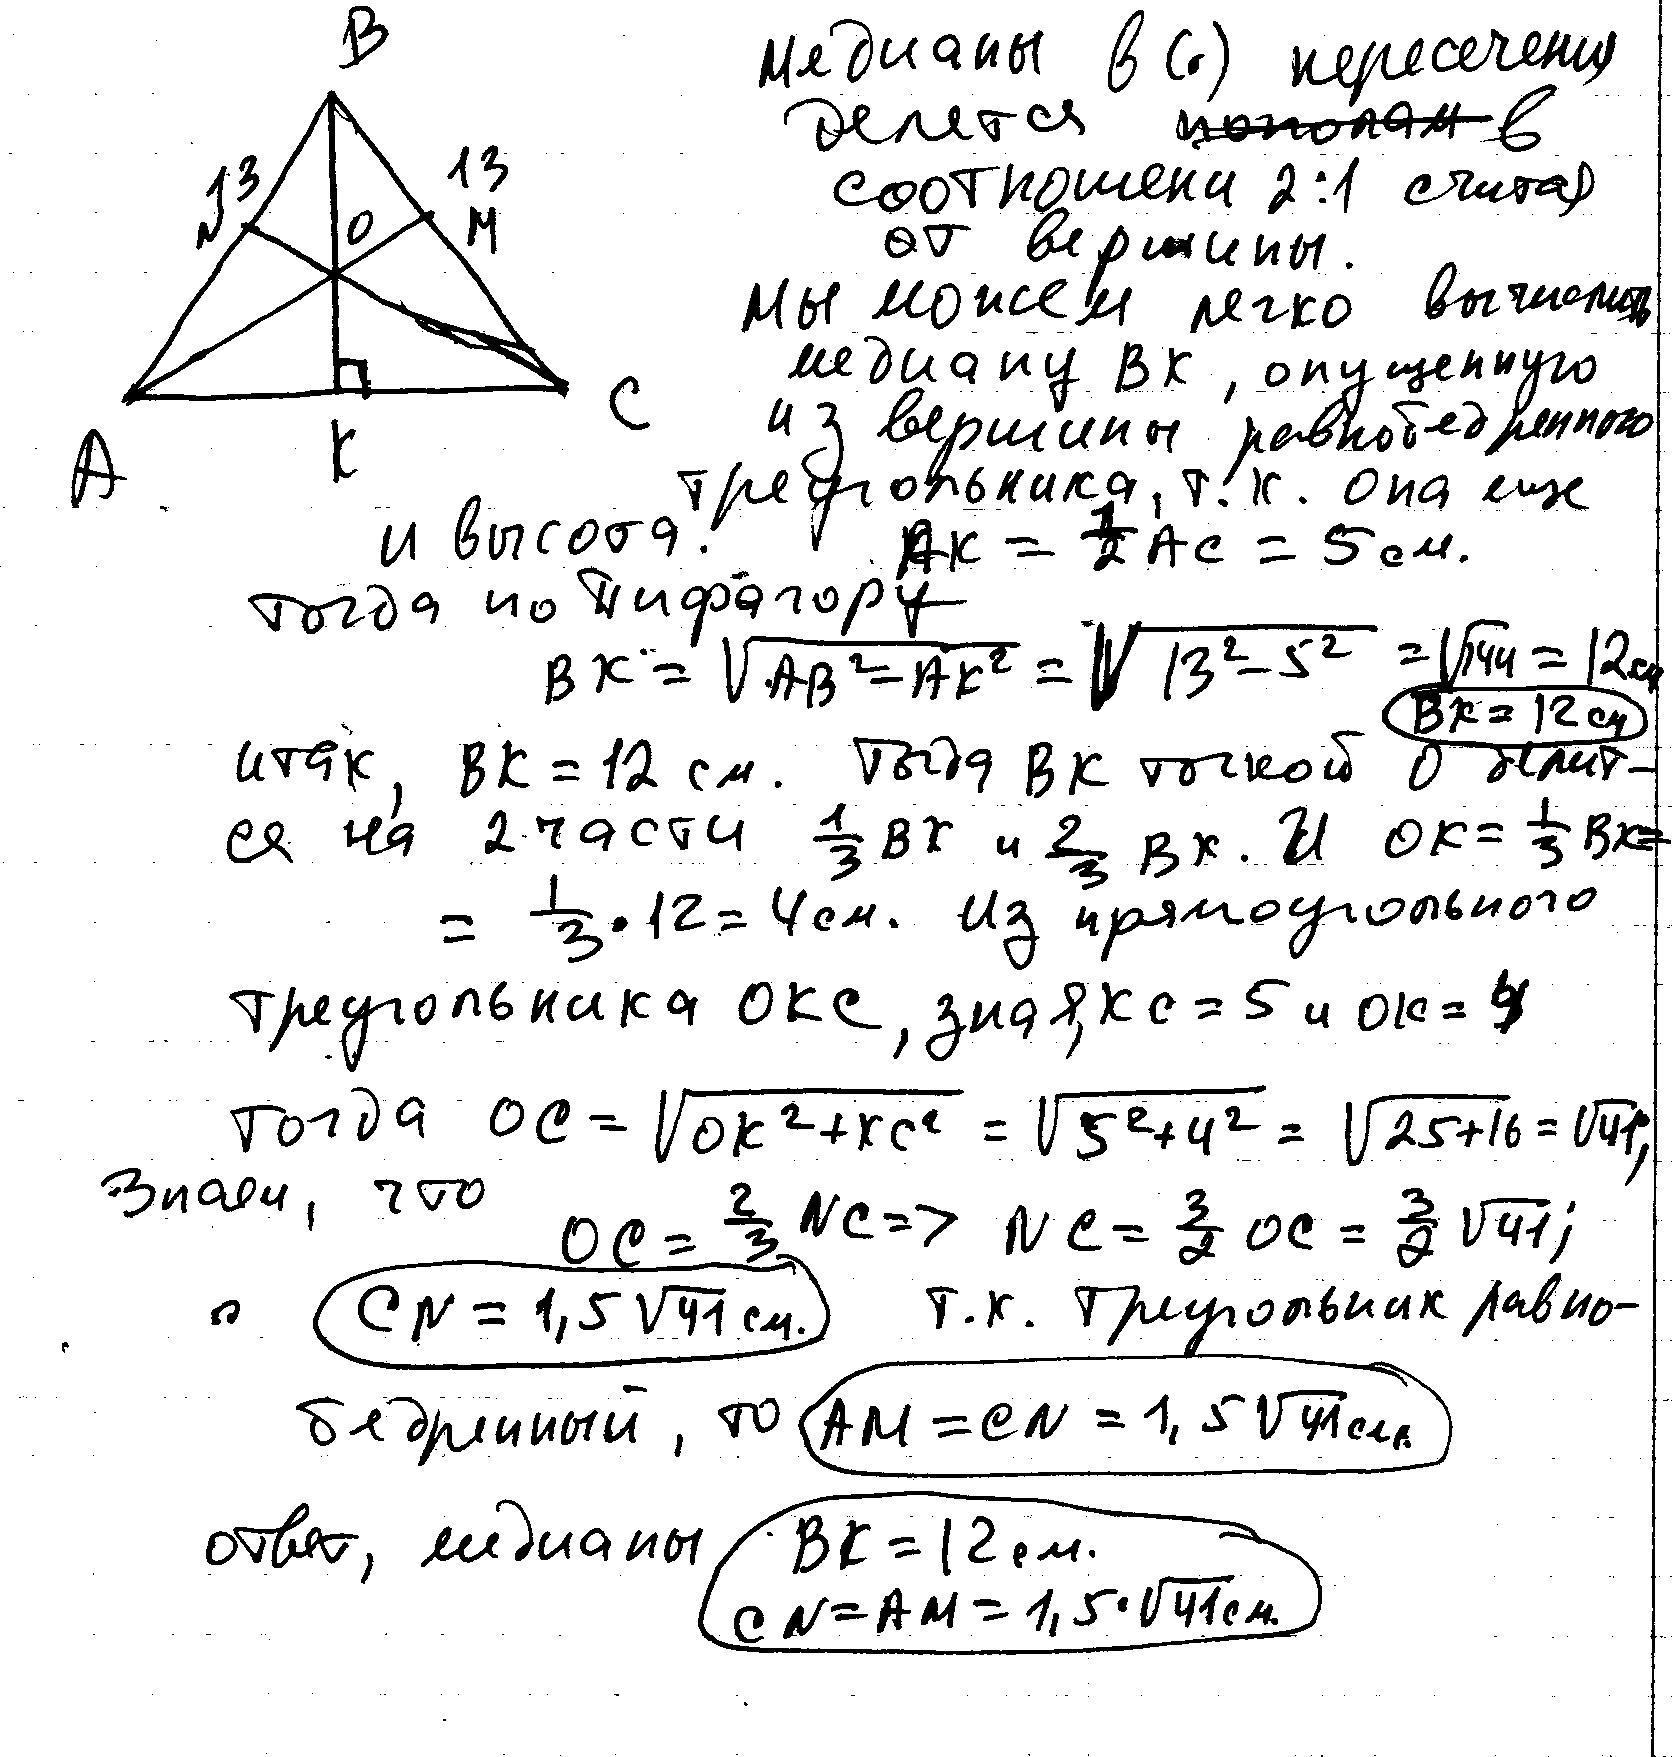 B
13
13
N
O
M
A
K
C
Медианы в (.) пересечения
делетса пополам в
соотношени 2:1 считая
от вершины.
Мы можем легко вычислить
медиану BK, опущенную
из вершины равнобедренного
треугольника, т.к. она еще
и высота. AK = 1/2 AC = 5 см.
тогда по Пифагору
BK = √(AB² - AK²) = √(13² - 5²) = √144 = 12 см
BK = 12 см
итак, BK = 12 см. Тогда BK точкой O делит-
ся на 2 части 1/3 BK и 2/3 BK. И OK = 1/3 BK =
= 1/3 · 12 = 4 см. Из прямоугольного
треугольника OKC, зная, KC = 5 и OK = 4
тогда OC = √(OK² + KC²) = √(5² + 4²) = √(25 + 16) = √41,
Знаем, что
OC = 2/3 NC => NC = 3/2 OC = 3/2 √41;
CN = 1,5 √41 см. т.к. треугольник равно-
бедренный, то AM = CN = 1,5 √41 см.
ответ, медианы BK = 12 см.
CN = AM = 1,5 · √41 см.